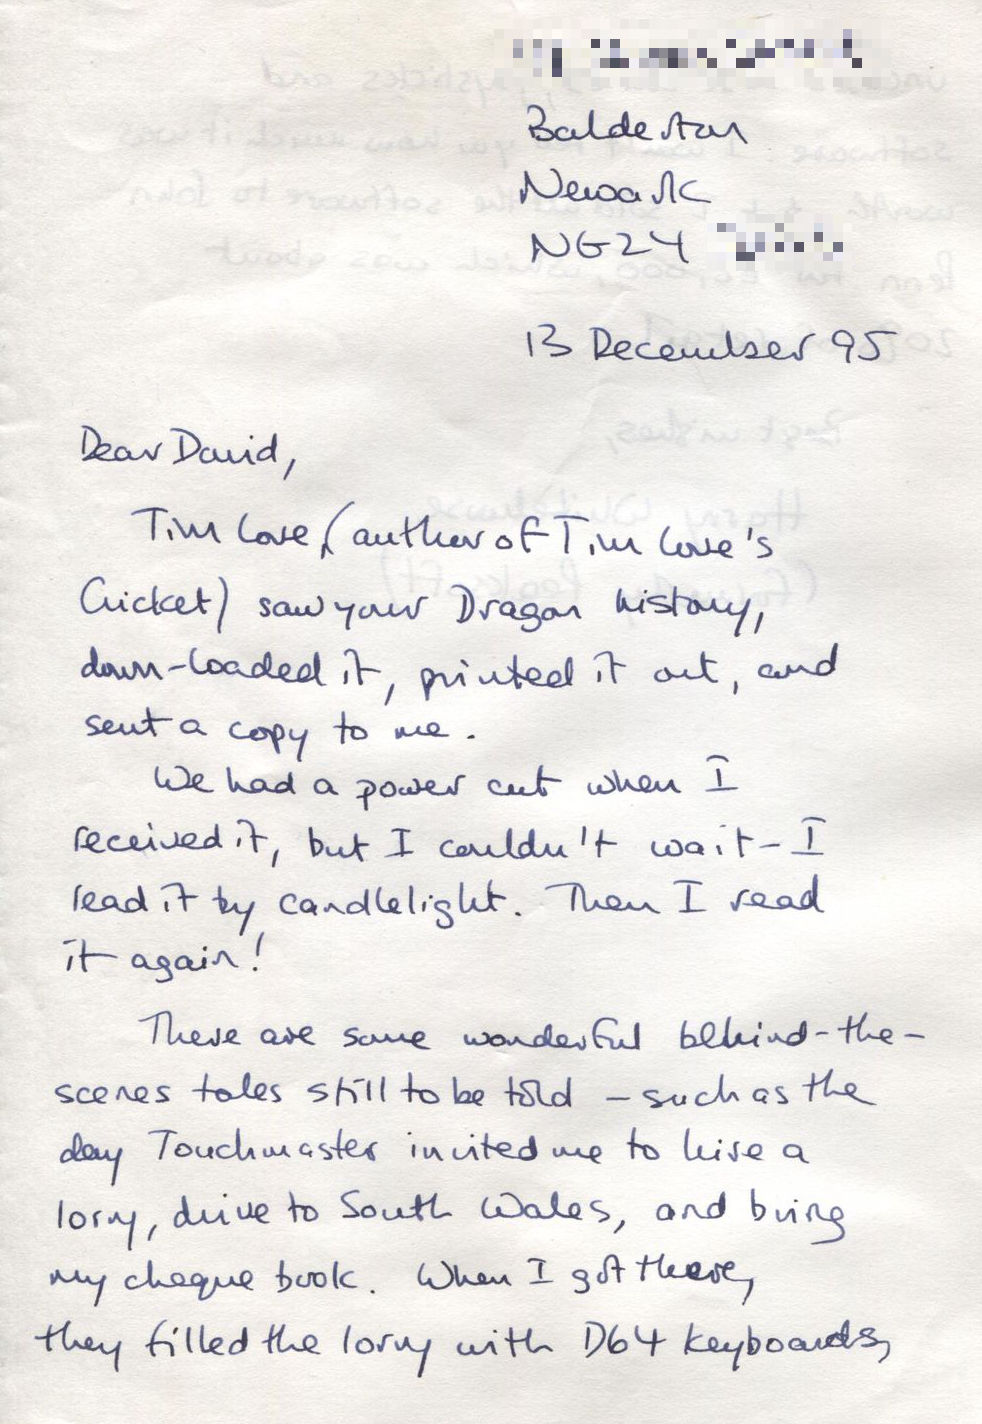 Balderton
Newark
NG24
13 December 95
Dear David,
Tim Love (author of Tim Love's
Cricket) saw your Dragon history,
down-loaded it, printed it out, and
sent a copy to me.
We had a power cut when I
received it, but I couldn't wait - I
read it by candlelight. Then I read
it again!
There are some wonderful behind-the-
scenes tales still to be told - such as the
day Touchmaster invited me to hire a
lorry, drive to South Wales, and bring
my cheque book. When I got there,
they filled the lorry with D64 keyboards,